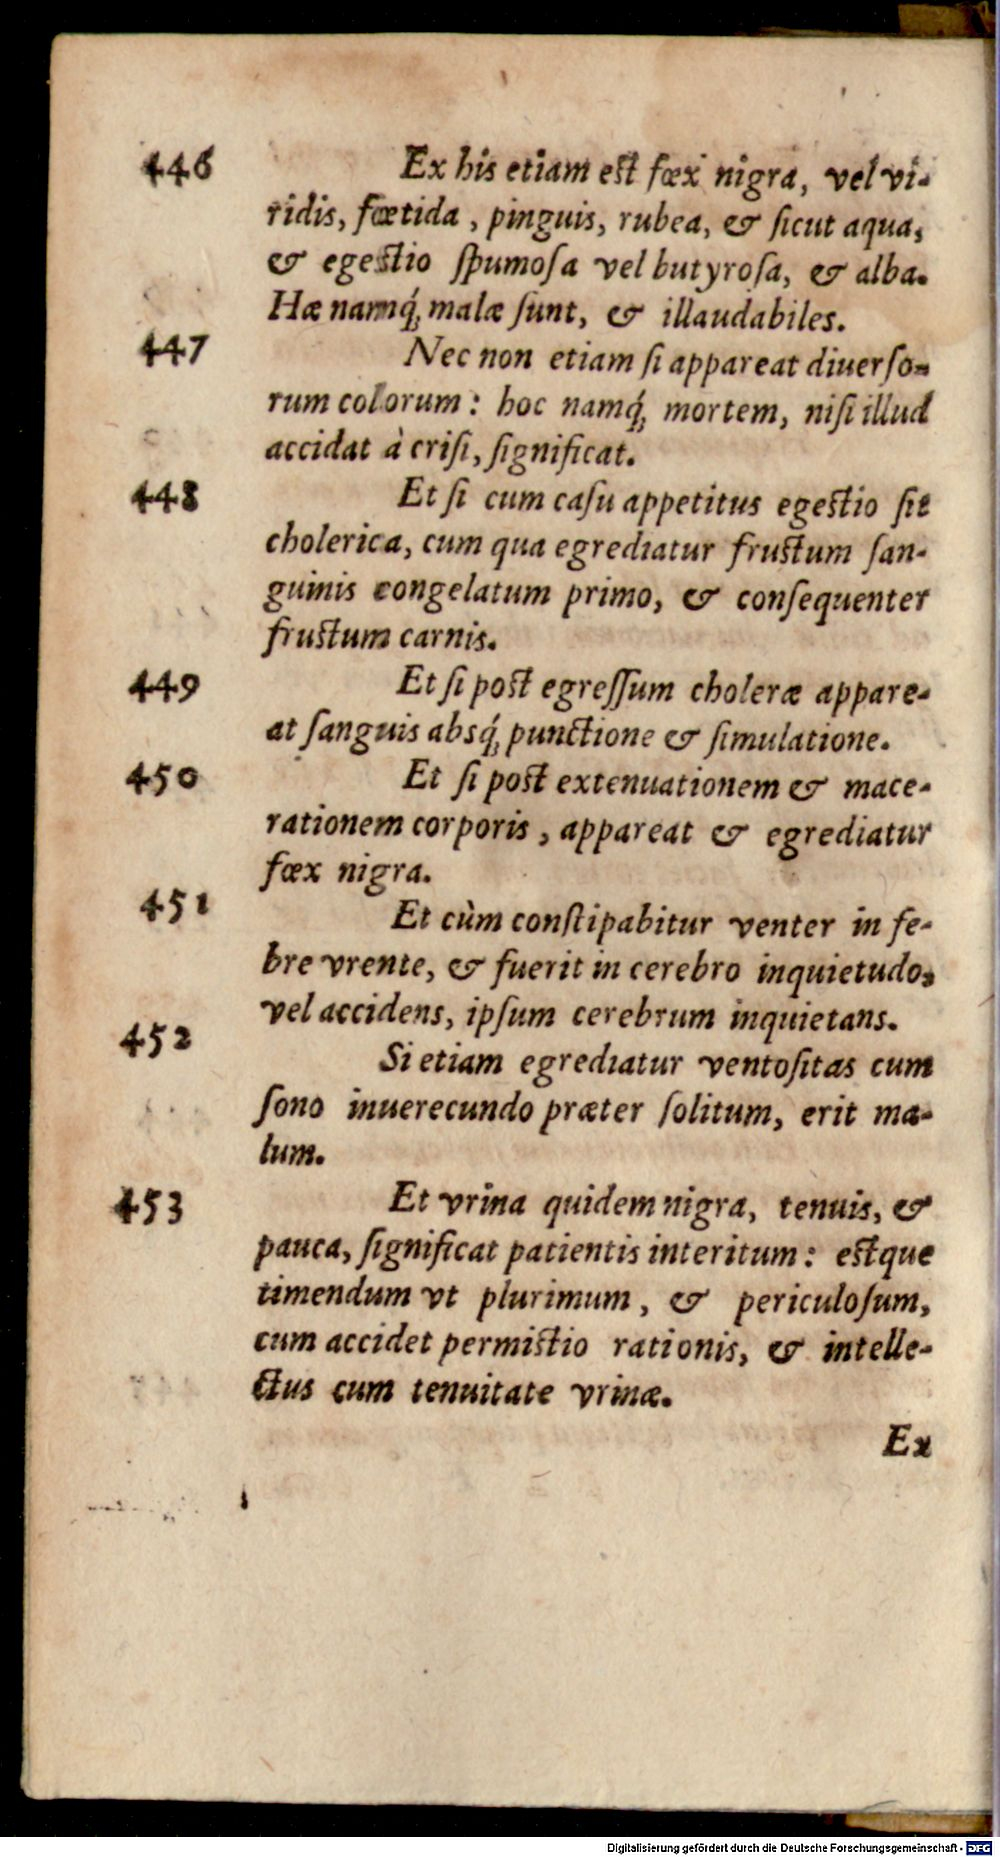 446 Ex his etiam est fœx nigra, vel vi-
ridis, fœtida, pinguis, rubea, & ſicut aqua,
& egestio ſpumoſa vel butyroſa, & alba.
Hæ namq́; malæ ſunt, & illaudabiles.
447 Nec non etiam ſi appareat diuerſo-
rum colorum: hoc namq́; mortem, niſi illud
accidat à criſi, ſignificat.
448 Et ſi cum caſu appetitus egestio ſit
cholerica, cum qua egrediatur frustum ſan-
guinis congelatum primo, & conſequenter
frustum carnis.
449 Et ſi post egreſſum choleræ appare-
at ſanguis absq́; punctione & ſimulatione.
450 Et ſi post extenuationem & mace-
rationem corporis, appareat & egrediatur
fœx nigra.
451 Et cùm conſtipabitur venter in fe-
bre vrente, & fuerit in cerebro inquietudo,
vel accidens, ipſum cerebrum inquietans.
452 Si etiam egrediatur ventoſitas cum
ſono inuerecundo præter ſolitum, erit ma-
lum.
453 Et vrina quidem nigra, tenuis, &
pauca, ſignificat patientis interitum: estque
timendum vt plurimum, & periculoſum,
cum accidet permistio rationis, & intelle-
ctus cum tenuitate vrinæ.
Ex
Digitalisierung gefördert durch die Deutsche Forschungsgemeinschaft - DFG